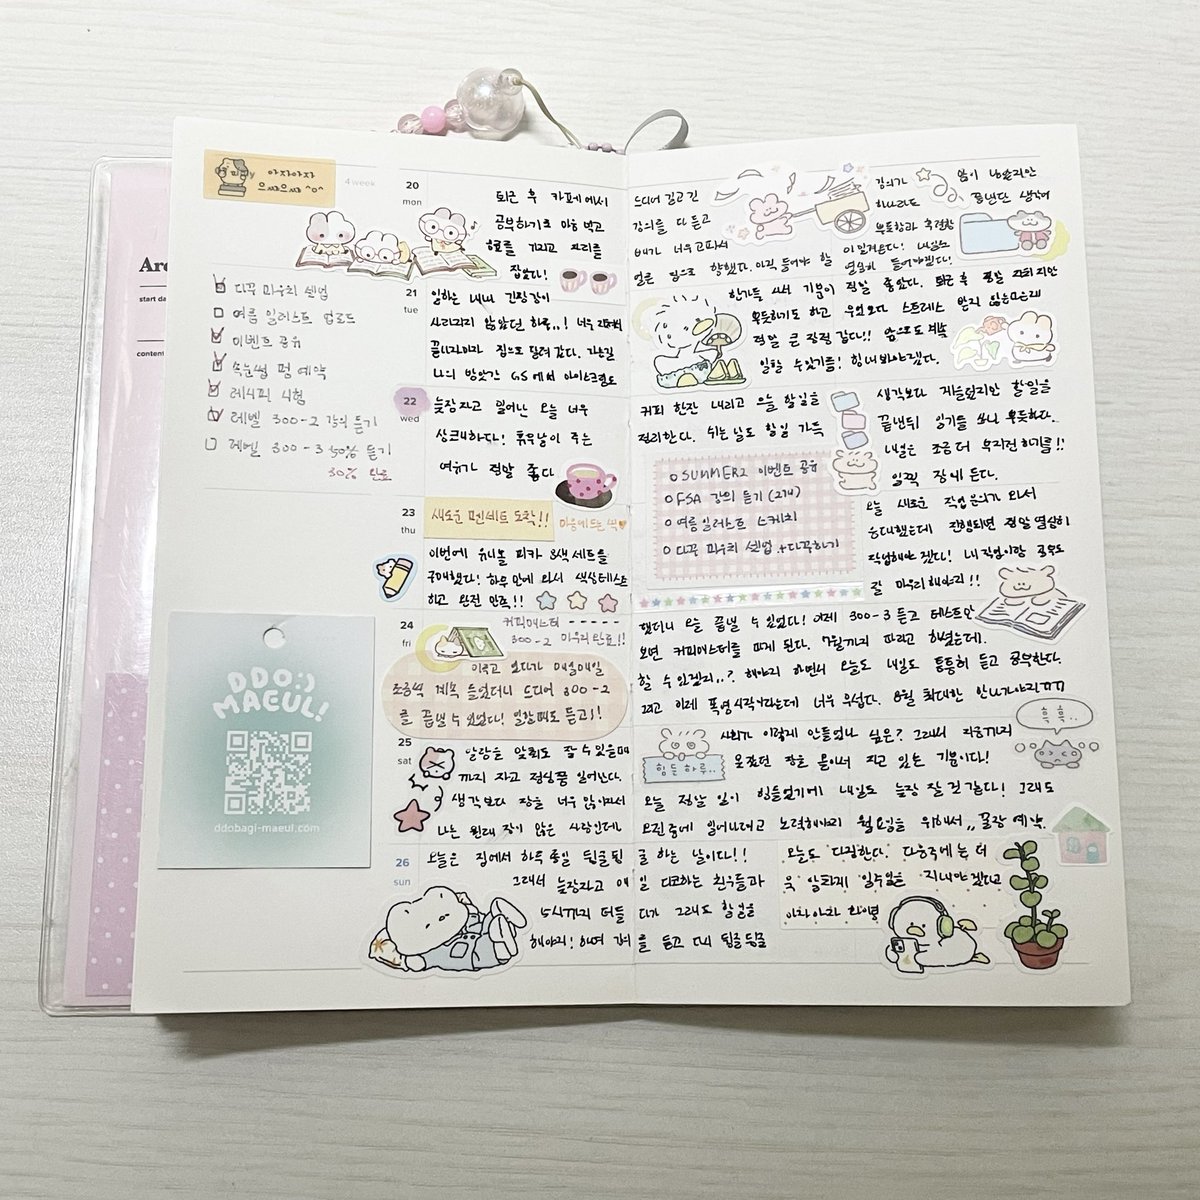 아자아자
으쌰으쌰 ^o^
4 week
다꾸 파우치 셋업
여름 일러스트 업로드
이벤트 공유
속눈썹 펌 예약
레시피 시험
레벨 300-2 강의 듣기
레벨 300-3 50% 듣기
30% 완료
start da
content
DDO:)
MAEUL!
ddobagi-maeul.com
20
mon
퇴근 후 카페에서
공부하기로 마음 먹고
자리를
잡았다!
드디어 길고 긴
강의를 다 듣고
배가 너무 고파서
얼른 집으로 향했다. 아직 들어야 할
강의가
하나라도
많이 남았지만
끝냈단 생각에
뿌듯함과 후련함
이 밀려온다! 내일도
열심히 들어야겠다!
21
tue
일하는 내내 긴장감이
사라지지 않았던 하루..! 너무
끝나자마자 집으로 달려 갔다. 가는길
나의 방앗간 GS에서 아이스크림도
한가득 사서 기분이 정말 좋았다. 퇴근 후 정말 지치지만
뿌듯하기도 하고 우엇보다 스트레스 받지 않는다는게
정말 큰 장점 같다!! 앞으로도 계속
일할 수 있기를! 힘내봐야겠다.
22
wed
늦잠자고 일어난 오늘 너무
상쾌하다! 휴무날이 주는
여유가 정말 좋다
커피 한잔 내리고 오늘 할일을
정리한다. 쉬는 날도 할일 가득
o SUMMER2 이벤트 공유
o FSA 강의 듣기 (274)
o 여름 일러스트 스케치
o 다꾸 파우치 셋업 + 다꾸하기
생각보다 게을렀지만 할일을
끝낸뒤 일기를 쓰니 뿌듯하다.
내일은 조금 더 부지런하기를!!
일찍 잠에 든다.
23
thu
새로운 펜세트 도착!!
마음에 드는 색
이번에 유니볼 피카 8색 세트를
구매했다! 하루만에 와서 색상테스트
하고 완전 만족!!
오늘 새로운 작업문의가 와서
응대했는데 진행되면 정말 열심히
작업해야겠다! 내 작업이랑 공부도
잘 마무리해야지!!
24
fri
커피마스터 -----
300-2 마무리 완료!!
미루고 보다가 매일매일
조금씩 계속 들었더니 드디어 300-2
를 끝낼 수 있었다! 알람때도 듣고!!
했더니 오늘 끝낼 수 있었다! 이제 300-3 듣고 테스트만
보면 커피마스터를 따게 된다. 7월까지 따라고 하셨는데.
할 수 있겠지..? 해야지 하면서 오늘도 내일도 틈틈히 듣고 공부한다.
그리고 이제 폭염 시작이라는데 너무 무섭다. 8월 최대한 안나가야지ㅠㅠ
흑흑..
25
sat
알람을 맞춰도 잘 수 있을때
까지 자고 점심쯤 일어난다.
생각보다 잠을 너무 많이자서
나는 원래 잠이 많은 사람인데
힘든하루..
사회가 이렇게 만들었나 싶은? 그래서 지금까지
못잤던 잠을 몰아서 자고 있는 기분이다!
오늘 정말 일이 힘들었기에 내일도 늦잠 잘 것 같다! 그래도
오전중에 일어나려고 노력해야지 월요일을 위해서,, 꿀잠 예약.
26
sun
오늘은 집에서 하루 종일 뒹굴뒹굴 하는 날이다!!
그래서 늦잠자고 매일 디코하는 친구들과
5시까지 떠들다가 그래도 할일을
해야지! 하며 강의를 듣고 다시 뒹굴뒹굴
오늘도 다짐한다. 다음주에는 더
욱 알차게 일주일을 지내야겠다고
아자아자 화이팅